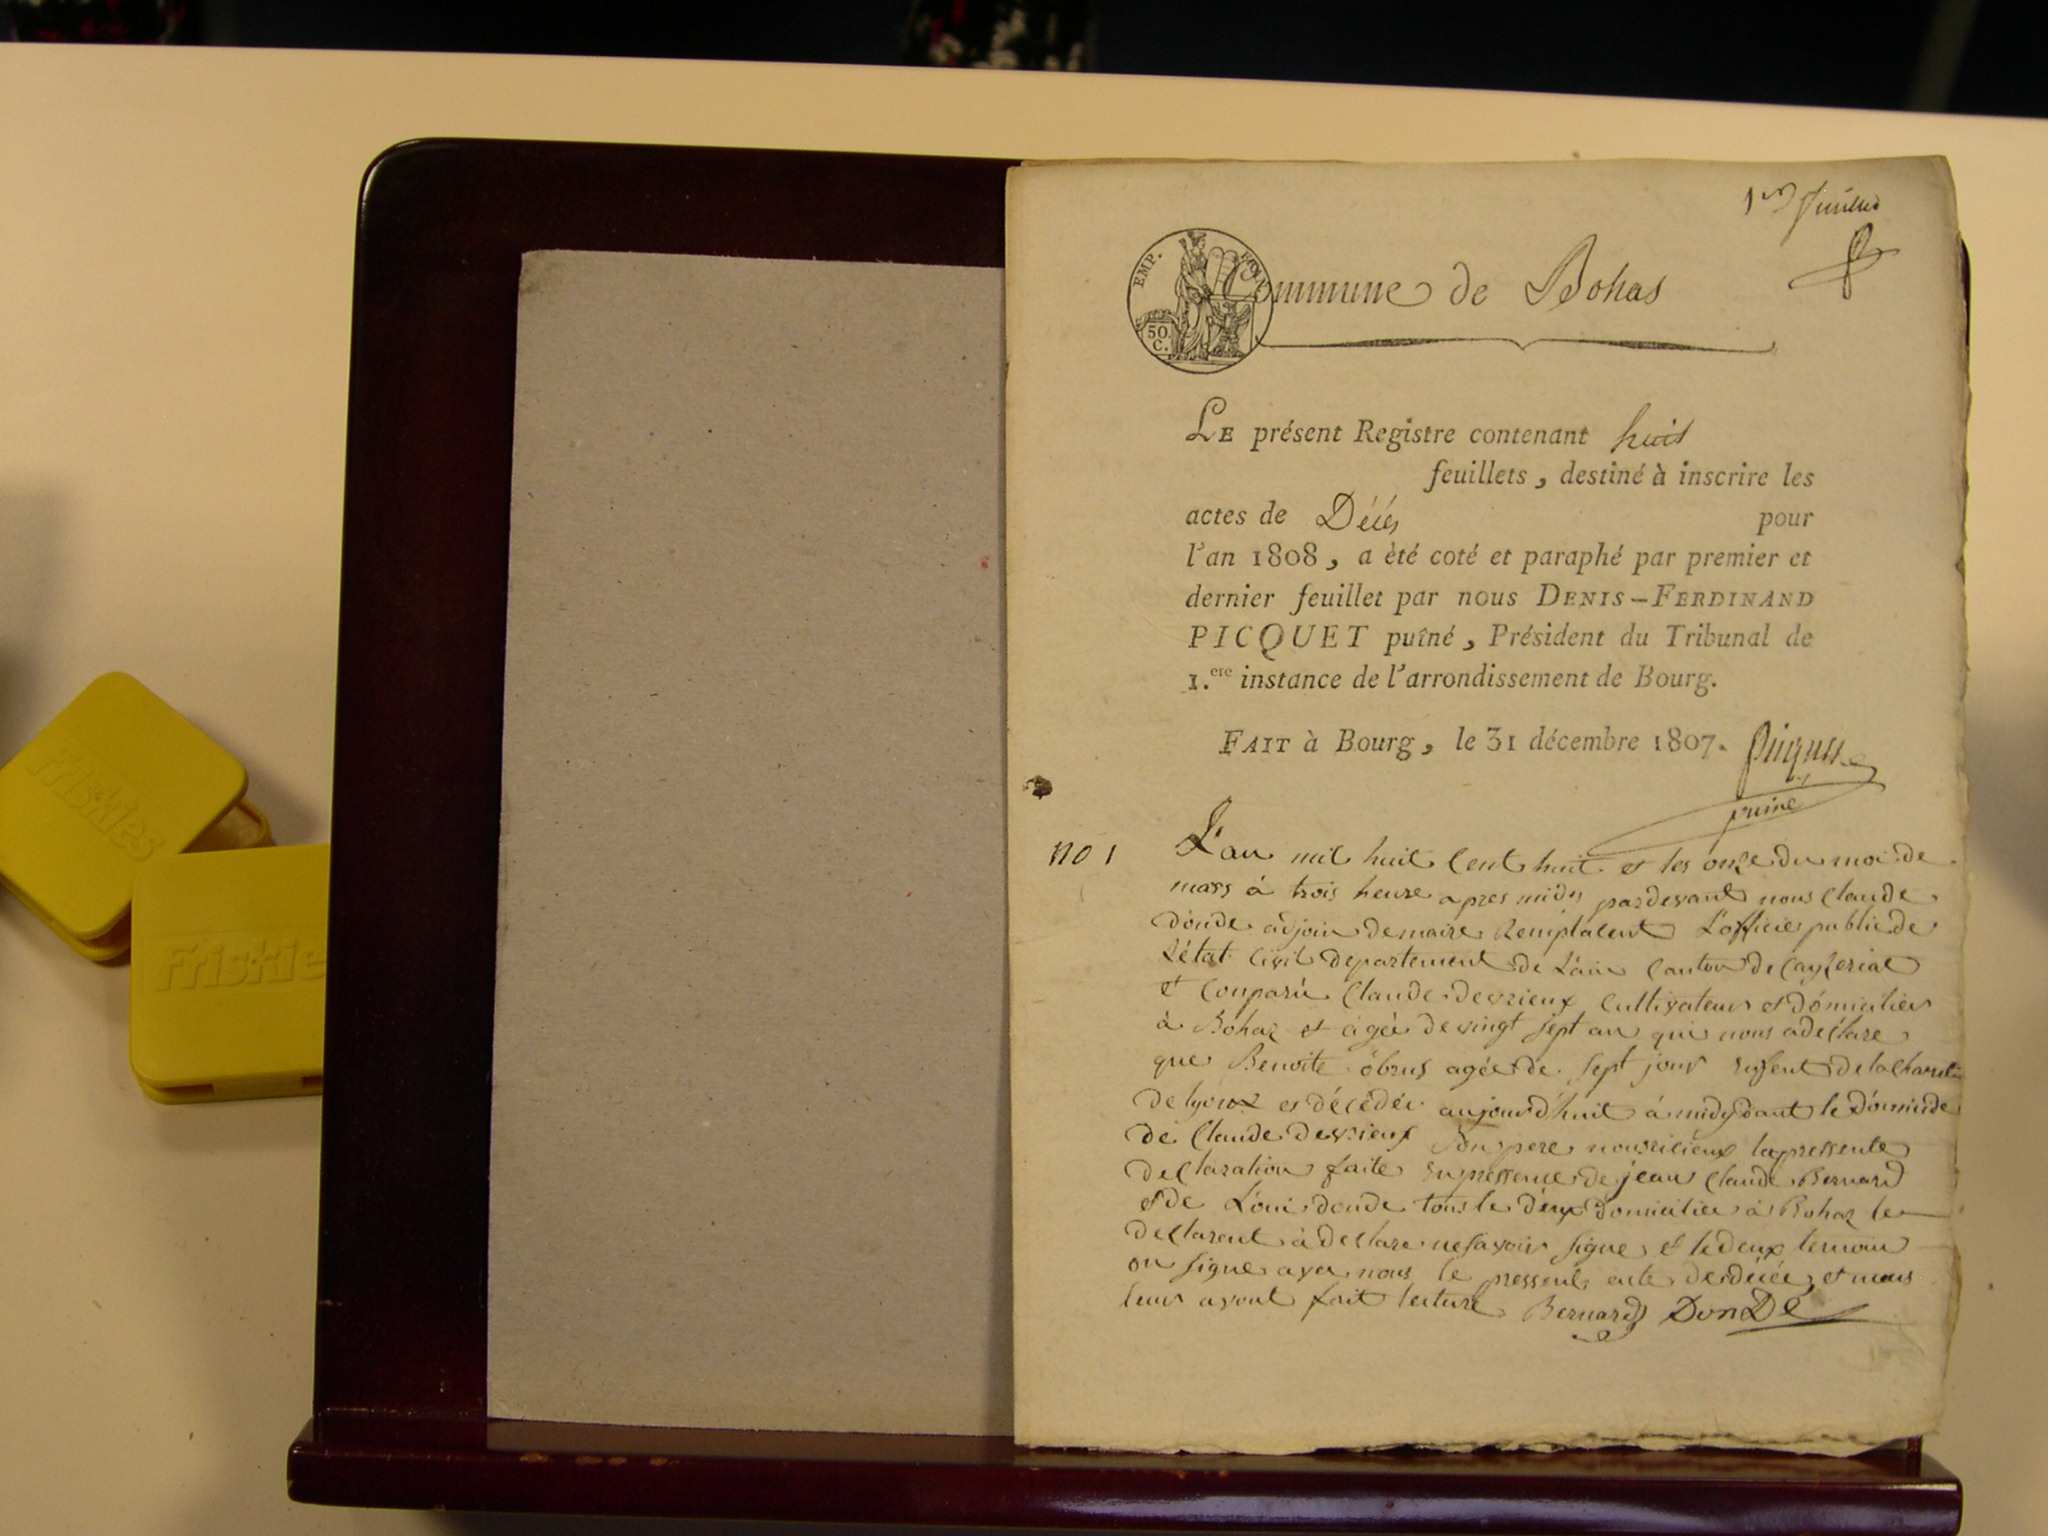 1er feuillet
EMP. FRAN
50.
C.
Commune de Bohas
LE présent Registre contenant huit
feuillets, destiné à inscrire les
actes de Décés pour
l'an 1808, a èté coté et paraphé par premier et
dernier feuillet par nous DENIS-FERDINAND
PICQUET puîné, Président du Tribunal de
1.ere instance de l'arrondissement de Bourg.
FAIT à Bourg, le 31 décembre 1807. Picquet
puiné
no 1
L'an mil huit Cent huit et les onze du moi de
mars à trois heure apres midy pardevant nous Claude
donde adjoin de maire Remplacent L'officie public de
L'état Civil departement de L'ain Canton de Cayzeriat
et Conparu Claude devrieux Cultivateur et domicilier
à Bohaz et agée de vingt sept an qui nous a déclare
que Benoite obrus agée de sept jour enfent de la Charité
de lyonz es décédée aujourd'huit à midy dant le Domicide
de Claude devrieux son pere nouricieux la pressente
declaration faite en pressence de jean Claude Bernard
et de Loui donde tous le deux domicilier à Bohaz le
declarent à declare ne savoir signe et le deux temoin
on signe avec nous le pressent acte de décée et nous
leur avont fait lecture Bernard DonDe
Friskies
Friskie